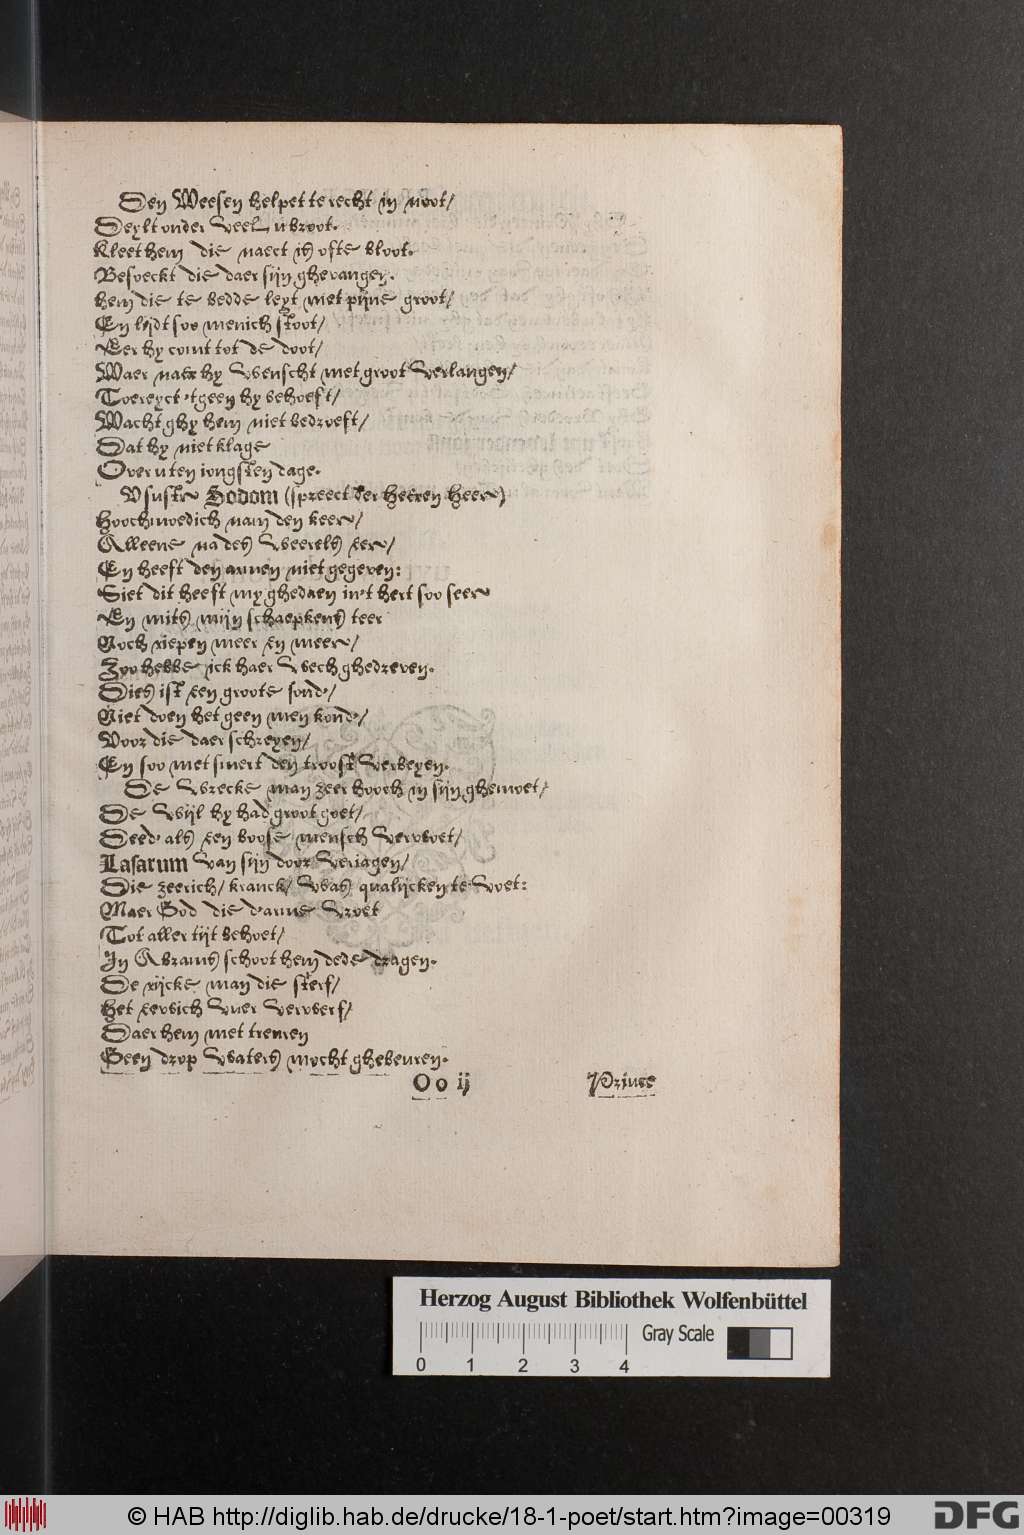 Den Weesen helpet te recht in noot/
Deylt onder veel u broot.
Kleet hem die naect is ofte bloot.
Besoeckt die daer sijn ghevangen.
Hem die te bedde leyt met pijne groot/
En lijdt soo menich stoot/
Eer hy comt tot de doot/
Waer naer hy wenscht met groot verlangen/
Toereyct 'tgeen hy behoeft/
Wacht ghy hem niet bedroeft/
Dat hy niet klage
Over u ten iongsten dage.
U suster Sodom (spreect der heeren heer)
Hoochmoedich nam den keer/
Alleene na des weerels eer/
En heeft den armen niet gegeven:
Siet dit heeft my ghedaen in't hert soo seer
En mits mijn schaepkens teer
Noch riepen meer en meer/
Zoo hebbe ick haer wech ghedreven.
Dies ist een groote sond'/
Niet doen het geen men kond'/
Voor die daer schreyen/
En soo met smert den troost verbeyen.
De vrecke man zeer hooch in sijn ghemoet/
De wijl hy had groot goet/
Deed' als een boose mensch verwoet/
Lasarum van sijn door veriagen/
Die zeerich/ kranck/ was qualijcken te voet:
Maer God die d'arme vroet
Tot aller tijt behoet/
In Abrams schoot hem dede dragen.
De rijcke man die sterf/
Het eewich vuer verwerf/
Daer hem met tremen
Geen drop waters mocht ghebeuren.
O o ij Prince
Herzog August Bibliothek Wolfenbüttel
Gray Scale
0 1 2 3 4
© HAB http://diglib.hab.de/drucke/18-1-poet/start.htm?image=00319 DFG